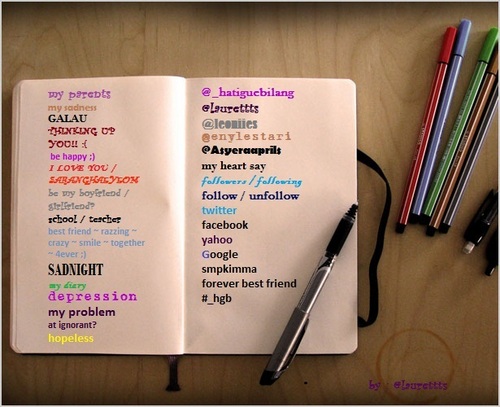 my parents
my sadness
GALAU
THINKING UP
YOU!! :(
be happy ;)
I LOVE YOU /
SARANGHAEYOM
be my boyfriend /
girlfriend?
school / teacher
best friend ~ razzing ~
crazy ~ smile ~ together
~ 4ever :)
SADNIGHT
my diary
depression
my problem
at ignorant?
hopeless
@_hatiguebilang
@laurettts
@leoniies
@enylestari
@Asyeraaprils
my heart say
followers / following
follow / unfollow
twitter
facebook
yahoo
Google
smpkimma
forever best friend
#_hgb
by #laurettts